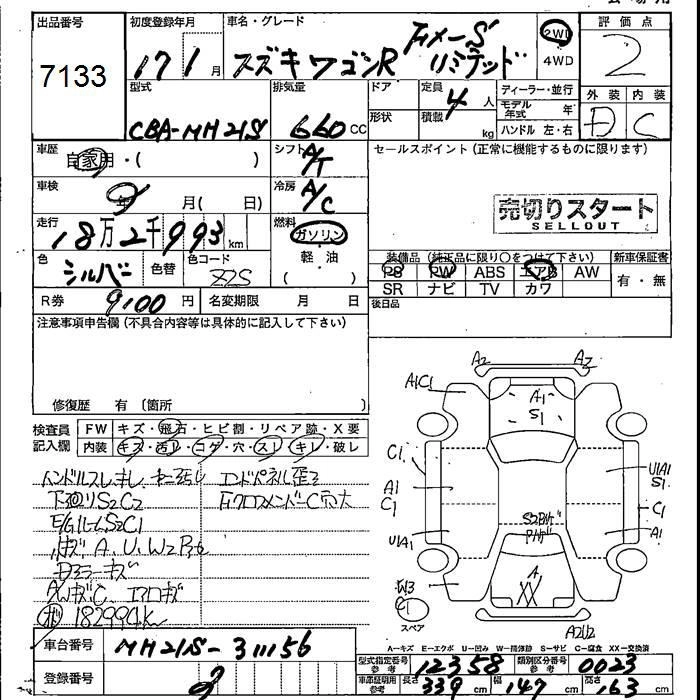 出品番号 初度登録年月 車名・グレード 評価点
7133 17 1 月 スズキワゴンR F×メーS リミテッド 2WD 4WD 2
型式 排気量 ドア 定員 ディーラー・並行 外装 内装
CBA-MH21S 660 CC 形状 積載 4 人 kg モデル年式 年 ハンドル 左・右 D C
車歴 自家用・( ) シフト A/T セールスポイント (正常に機能するものに限ります)
車検 年 月( 日) 冷房 A/C
売切りスタート
SELLOUT
走行 18万2千993 km 燃料 ガソリン 軽・油
装備品 (純正品に限り○をつけて下さい) 新車保証書
色 シルバー 色替 色コード Z2S
PS PW ABS エアB AW 有・無
SR ナビ TV カワ
R券 9100 円 名変期限 月 日 後日品
注意事項申告欄 (不具合内容等は具体的に記入して下さい)
修復歴 有 〔箇所 〕
検査員記入欄 FW キズ・飛石・ヒビ割・リペア跡・X要
内装 キズ・汚し・コゲ・穴・スレ・キレ・破し
下廻りS2C2
E/GルームS2C1
182994K
A2 A2
A1C1 A1 S1
C1 U1A1 S1
A1 C1 C1
U1A1 A1
W3 C1 A
スペア XX A2U2
A-キズ E-エクボ U-凹み W-補修跡 S-サビ C-腐食 XX-交換済
車台番号 MH21S-311156
型式指定番号 参考 12358 類別区分番号 参考 0023
登録番号
車庫証明用 参考 長さ 339 cm 幅 147 cm 高さ 163 cm